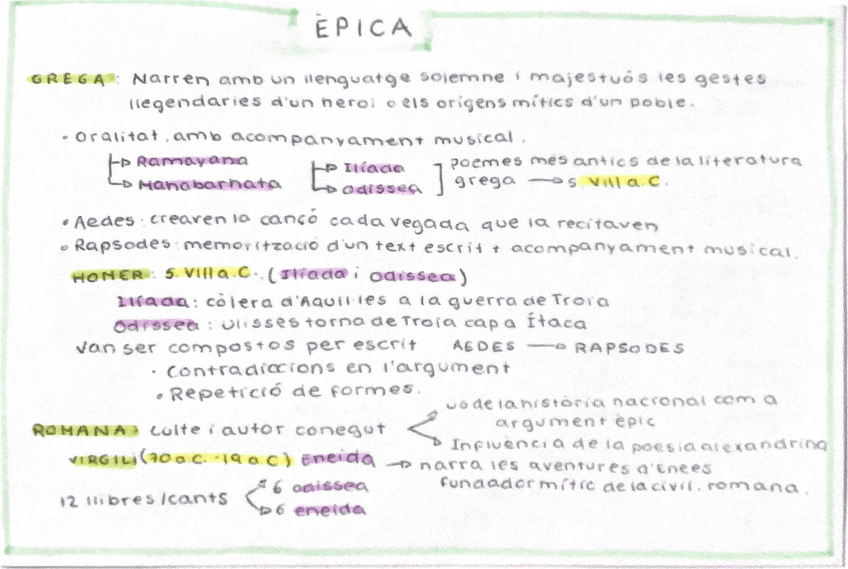 ÈPICA
GREGA: Narren amb un llenguatge solemne i majestuós les gestes
llegendaries d'un heroi o els orígens mítics d'un poble.
• Oralitat, amb acompanyament musical.
Ramayana Ilíada poemes més antics de la literatura
Mahabarhata Odissea grega → s VIII a.C.
• Aedes: crearen la cançó cada vegada que la recitaven
• Rapsodes: memorització d'un text escrit + acompanyament musical.
HOMER: s. VIII a.C. (Ilíada i Odissea)
Ilíada: còlera d'Aquil·les a la guerra de Troia
Odissea: Ulisses torna de Troia cap a Ítaca
Van ser compostos per escrit AEDES → RAPSODES
• Contradiccions en l'argument
• Repetició de formes.
us de la història nacional com a
argument èpic
ROMANA: Culte i autor conegut
Influència de la poesia alexandrina
VIRGILI (70 a C. - 19 a C) Eneida → narra les aventures d'Enees
fundador mític de la civil. romana.
12 llibres/cants
6 odissea
6 eneida